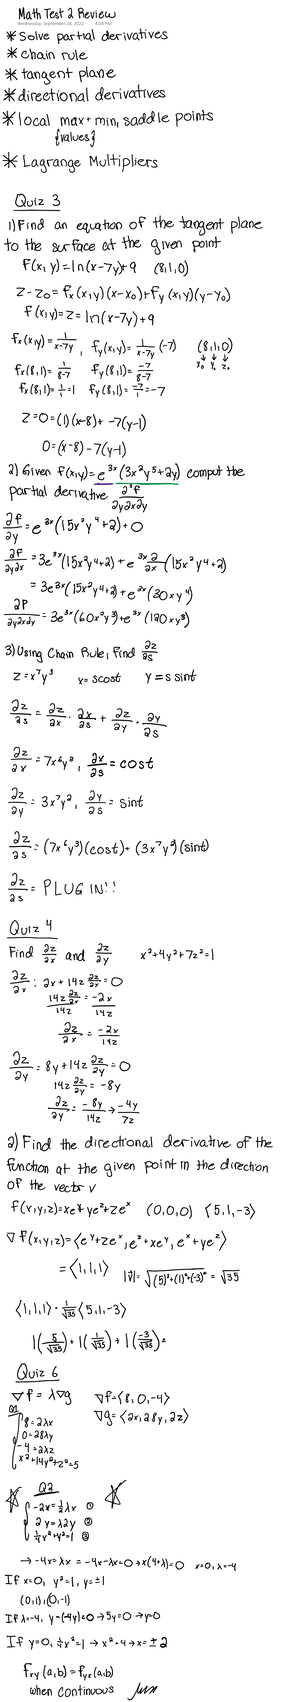 Math Test 2 Review
Wednesday, September 28, 2022 4:04 PM
* Solve partial derivatives
* chain rule
* tangent plane
* directional derivatives
* local max + min, saddle points
{values}
* Lagrange Multipliers
Quiz 3
1) Find an equation of the tangent plane
to the surface at the given point
f(x,y)=ln(x-7y)+9 (8,1,0)
z-z₀=fₓ(x,y)(x-x₀)+f_y(x,y)(y-y₀)
f(x,y)=z=ln(x-7y)+9
fₓ(x,y)=1/(x-7y), f_y(x,y)=1/(x-7y)(-7) (8,1,0)
fₓ(8,1)=1/(8-7) f_y(8,1)=-7/(8-7) x₀ y₀ z₀
fₓ(8,1)=1/1=1 f_y(8,1)=-7/1=-7
z-0=(1)(x-8)+-7(y-1)
0=(x-8)-7(y-1)
2) Given f(x,y)=e^3x(3x²y⁵+2y) comput the
partial derivative ∂³f/∂y∂x∂y
∂f/∂y=e^3x(15x²y⁴+2)+0
∂f/∂y∂x=3e^3x(15x²y⁴+2)+e^3x ∂/∂x(15x²y⁴+2)
=3e^3x(15x²y⁴+2)+e^3x(30xy⁴)
∂f/∂y∂x∂y=3e^3x(60x²y³)+e^3x(120xy³)
3) Using Chain Rule, Find ∂z/∂s
z=x⁷y³ x=scost y=s sint
∂z/∂s=∂z/∂x·∂x/∂s+∂z/∂y·∂y/∂s
∂z/∂x=7x⁶y³, ∂x/∂s=cost
∂z/∂y=3x⁷y², ∂y/∂s=sint
∂z/∂s=(7x⁶y³)(cost)+(3x⁷y²)(sint)
∂z/∂s=PLUG IN!!
Quiz 4
Find ∂z/∂x and ∂z/∂y x²+4y²+7z²=1
∂z/∂x: 2x+14z ∂z/∂x=0
14z ∂z/∂x/14z=-2x/14z
∂z/∂x=-2x/14z
∂z/∂y=8y+14z ∂z/∂y=0
14z ∂z/∂y=-8y
∂z/∂y=-8y/14z→-4y/7z
2) Find the directional derivative of the
function at the given point in the direction
of the vector v
f(x,y,z)=xe^y+ye^z+ze^x (0,0,0) ⟨5,1,-3⟩
∇f(x,y,z)=⟨e^y+ze^x, e^z+xe^y, e^x+ye^z⟩
=⟨1,1,1⟩ |v|=√((5)²+(1)²+(-3)²)=√35
⟨1,1,1⟩·1/√35⟨5,1,-3⟩
1(5/√35)+1(1/√35)+1(-3/√35)=
Quiz 6
∇f=λ∇g ∇f=⟨8,0,-4⟩
Q1 ∇g=⟨2x,28y,2z⟩
8=2λx
0=28λy
-4=2λz
x²+14y²+z²=5
Q2
-2x=½λx ①
2y=λ2y ②
¼x²+y²=1 ③
→-4x=λx=-4x-λx=0→x(4+λ)=0 x=0, λ=-4
If x=0, y²=1, y=±1
(0,1),(0,-1)
If λ=-4, y-(-4y)=0→5y=0→y=0
If y=0, ¼x²=1→x²=4→x=±2
fxy(a,b)=fyx(a,b)
when continuous